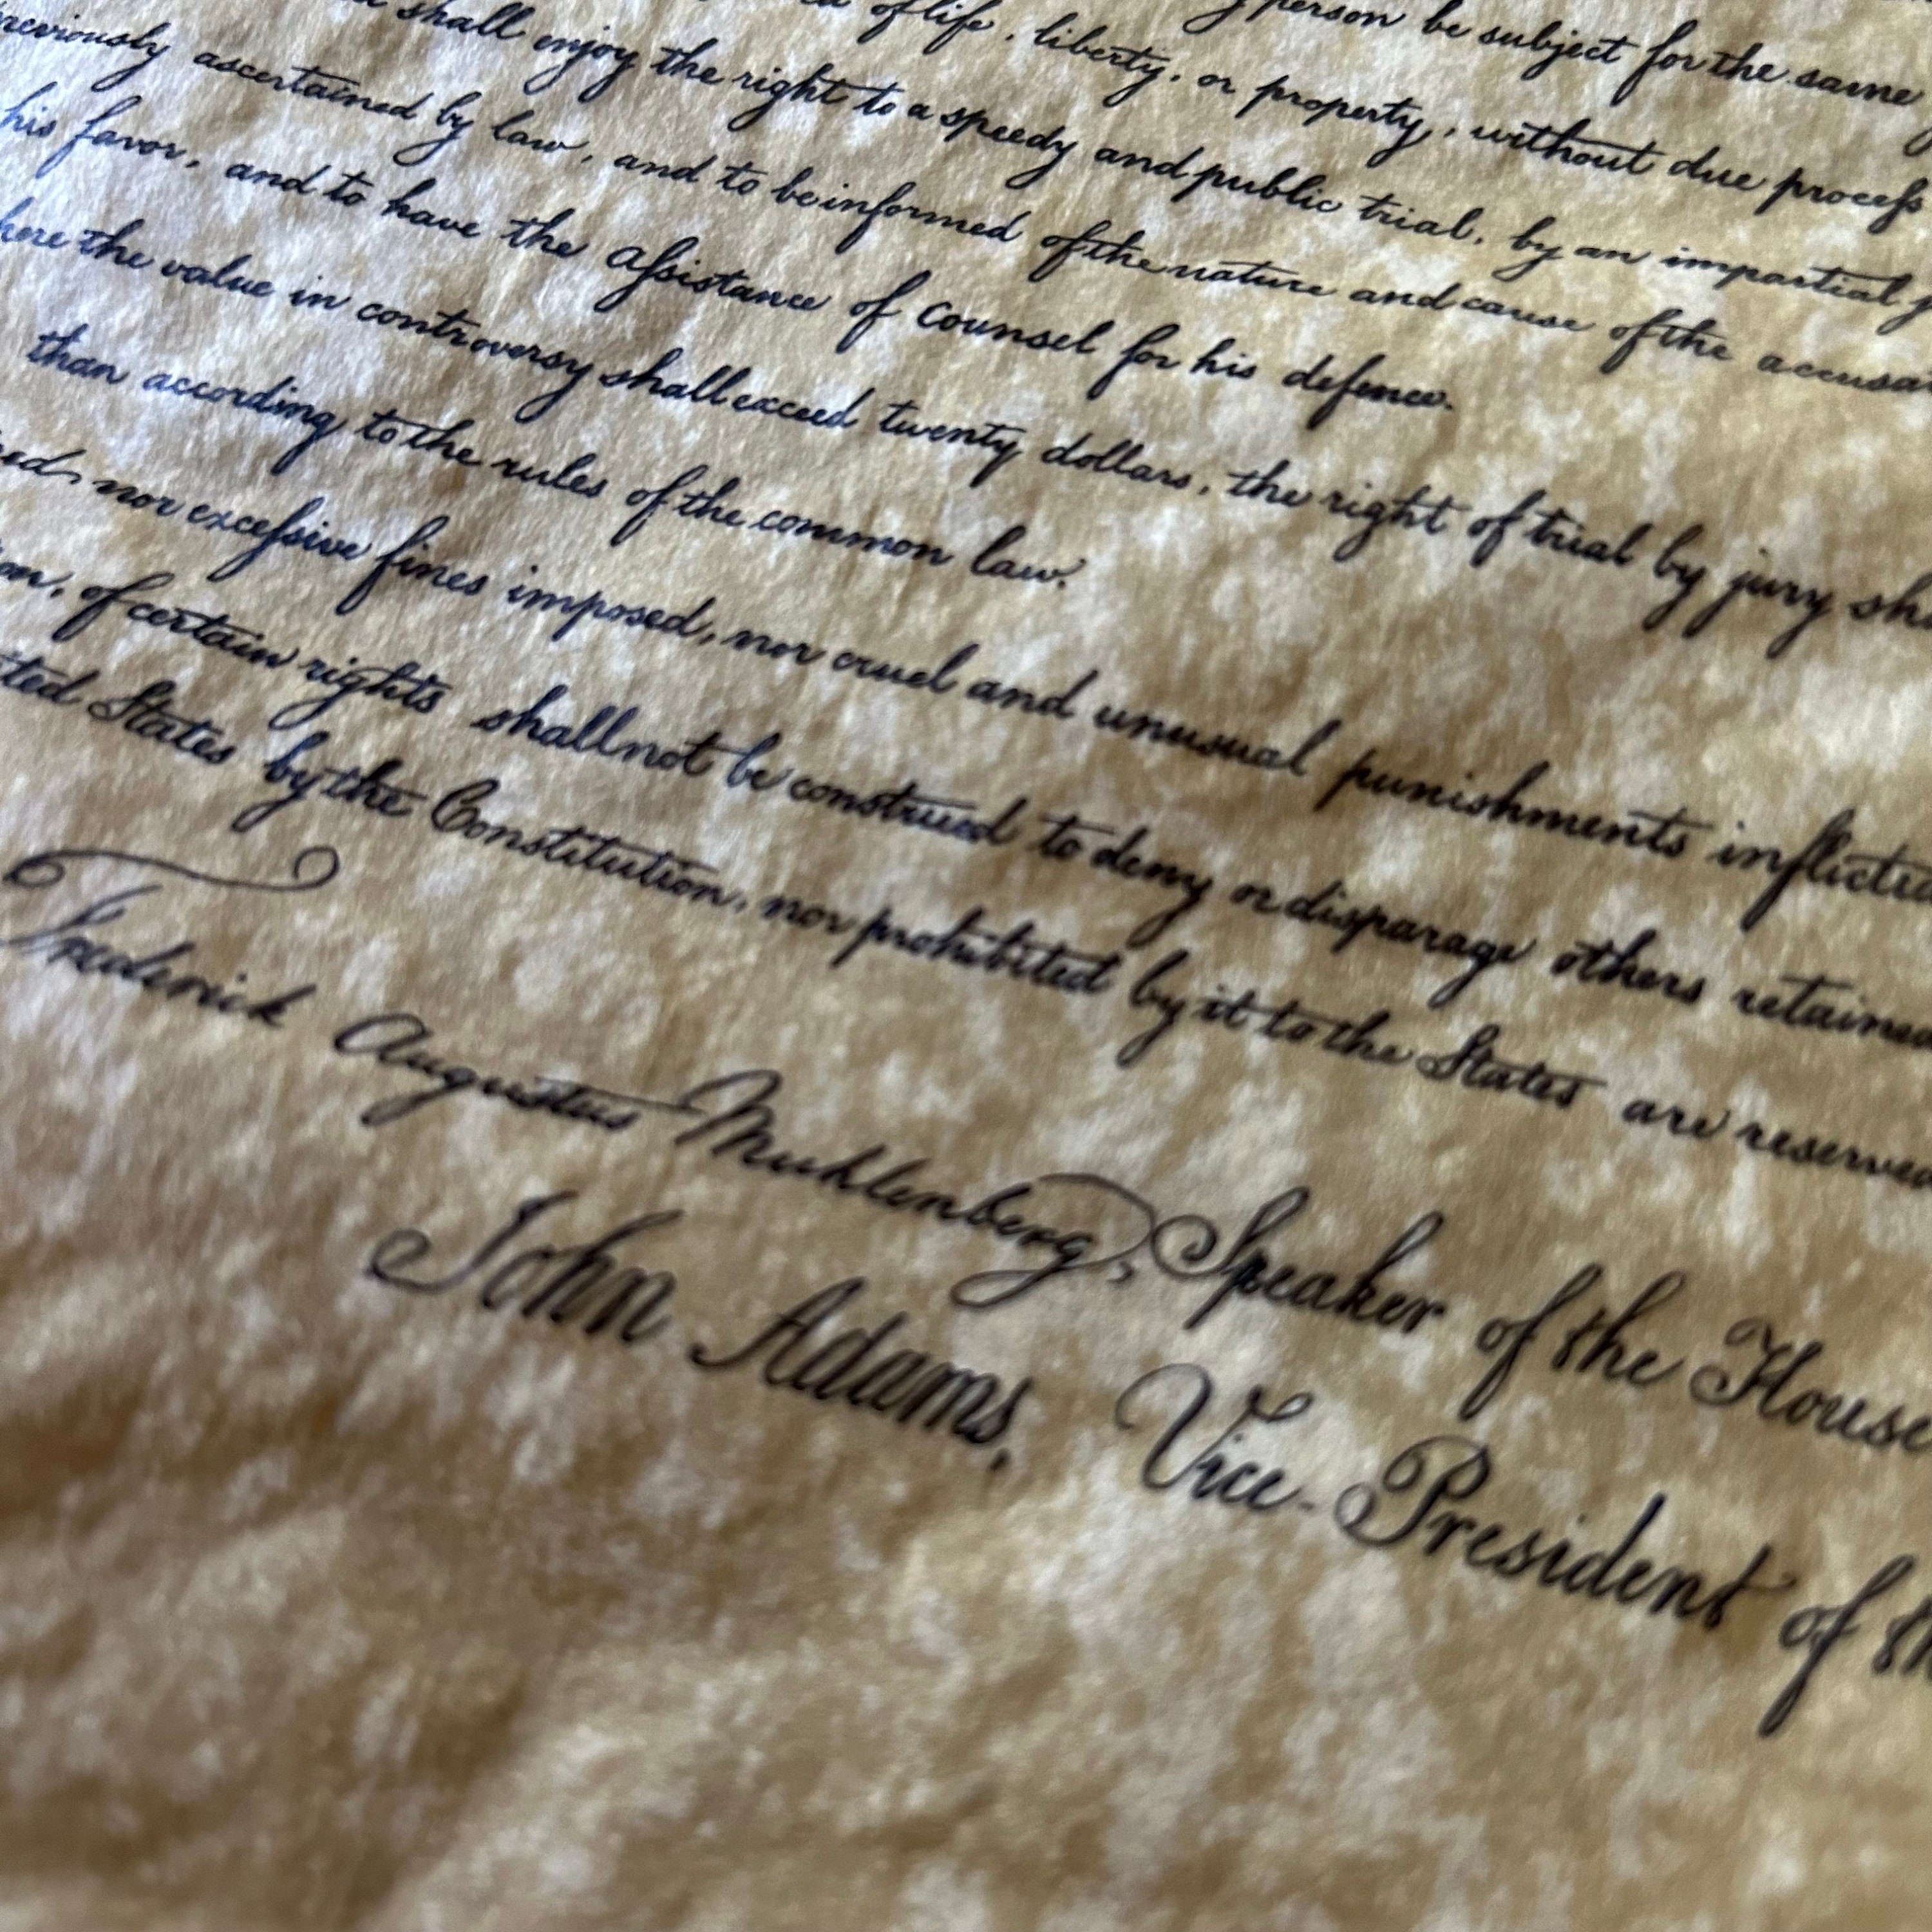 person be subject for the same
of life, liberty, or property, without due proceſs
shall enjoy the right to a speedy and public trial, by an impartial j
reviously ascertained by law, and to be informed of the nature and cause of the accusa
his favor, and to have the Aſsistance of Counsel for his defence.
here the value in controversy shall exceed twenty dollars, the right of trial by jury sh
than according to the rules of the common law.
ed, nor exceſsive fines imposed, nor cruel and unusual punishments inflicted
on, of certain rights shall not be construed to deny or disparage others retained
ted States by the Constitution, nor prohibited by it to the States are reserved
Frederick Augustus Muhlenberg, Speaker of the House
John Adams, Vice-President of th